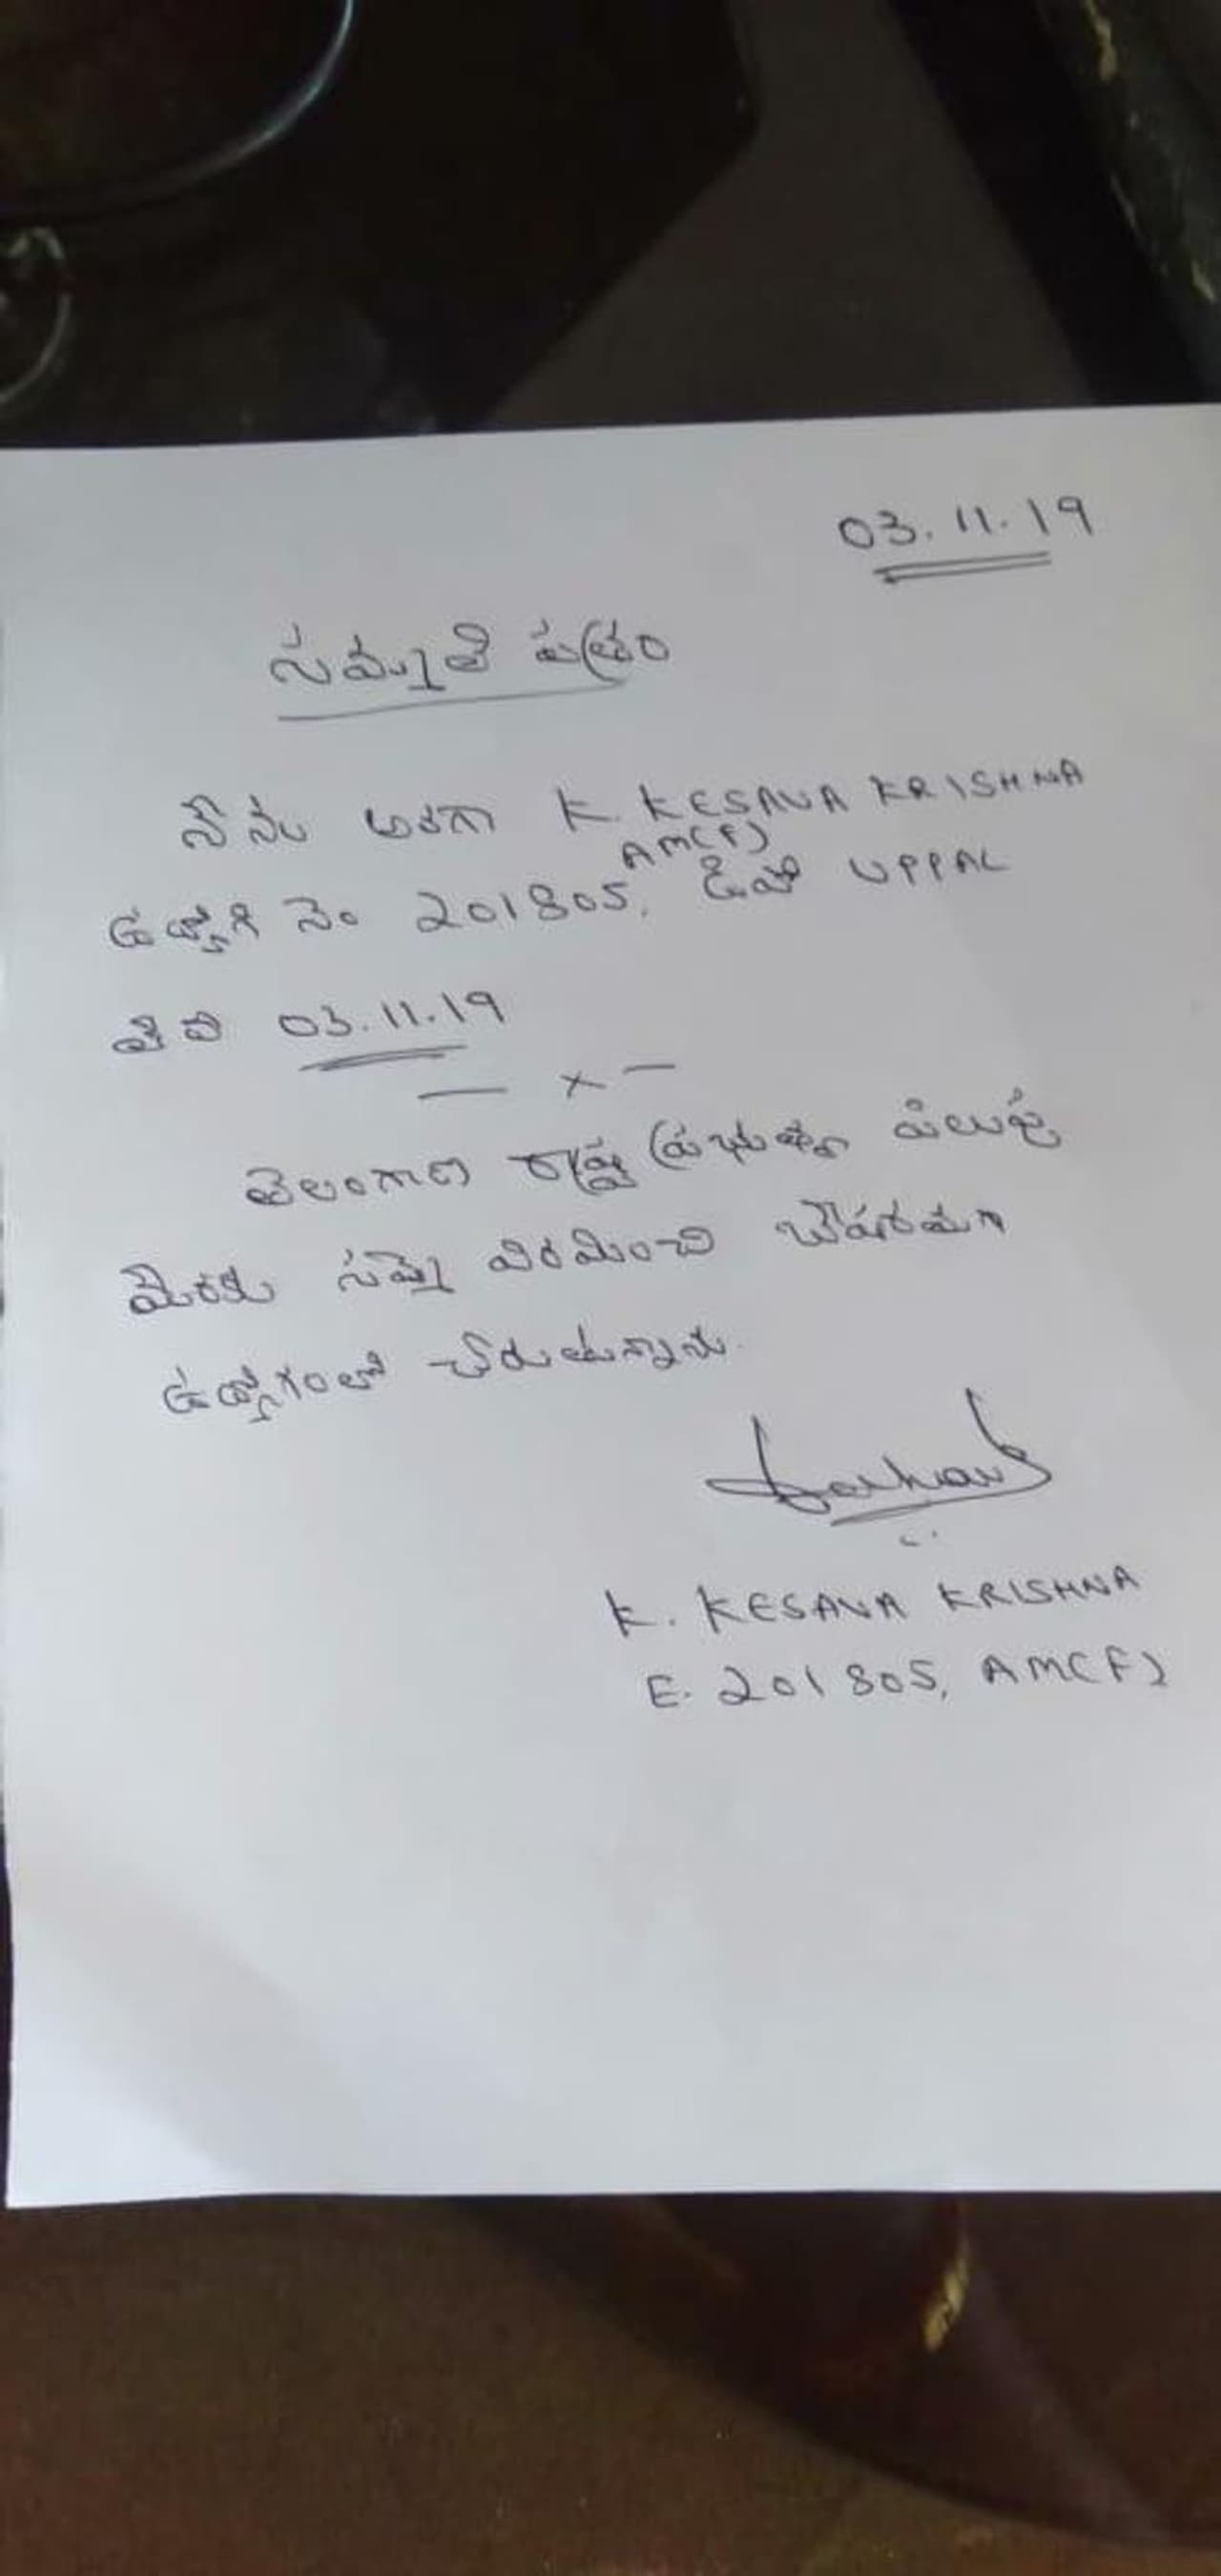 03.11.19
సమ్మతి పత్రం
నేను అనగా K. KESAVA KRISHNA
AM(F)
ఉద్యోగి నెం 201805, డిపో UPPAL
తేది 03.11.19
— x —
తెలంగాణ రాష్ట్ర ప్రభుత్వం పిలుపు
మేరకు సమ్మె విరమించి
ఉద్యోగంలో చేరుతున్నాను.
K. KESAVA KRISHNA
E. 201805, AM(F)